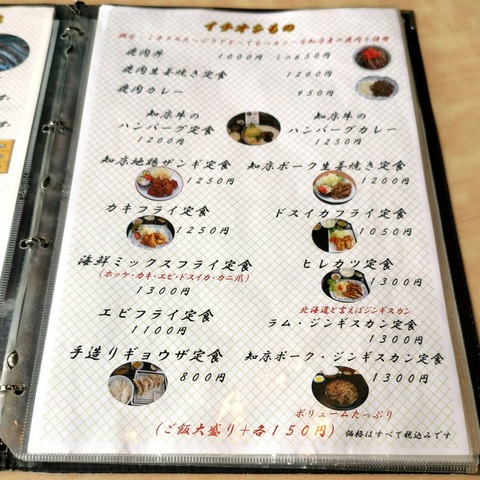 イチオシもの
焼肉丼 1000円 ミニ650円
焼肉生姜焼き定食 1200円
焼肉カレー 950円
知床牛の
ハンバーグ定食
1200円
知床牛の
ハンバーグカレー
1250円
知床地鶏ザンギ定食
1250円
知床ポーク生姜焼き定食
1200円
カキフライ定食
1250円
ドスイカフライ定食
1050円
海鮮ミックスフライ定食
(ホッケ・カキ・エビ・ドスイカ・カニ爪)
1300円
ヒレカツ定食
1300円
エビフライ定食
1100円
北海道と言えばジンギスカン
ラム・ジンギスカン定食
1300円
手造りギョウザ定食
800円
知床ポーク・ジンギスカン定食
1300円
ボリュームたっぷり
(ご飯大盛り+各150円)
価格はすべて税込みです